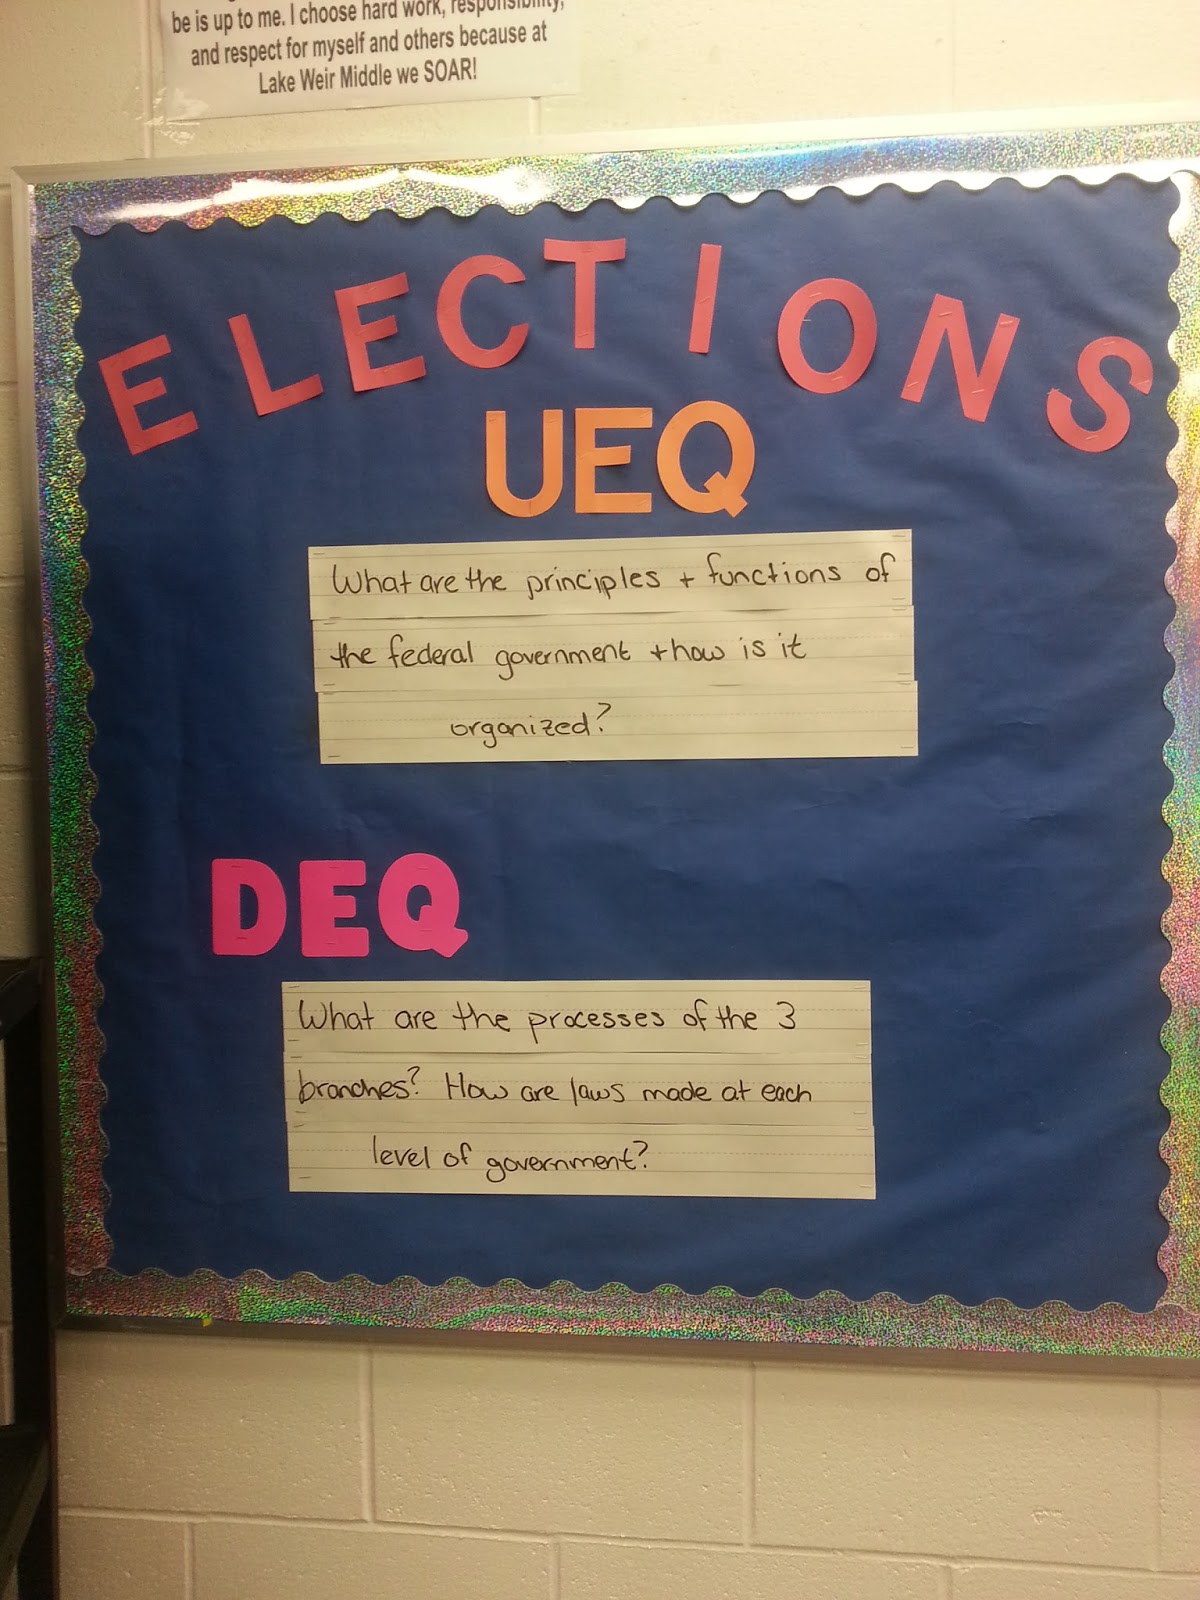 be is up to me. I choose hard work, responsibility,
and respect for myself and others because at
Lake Weir Middle we SOAR!
ELECTIONS
UEQ
What are the principles + functions of
the federal government + how is it
organized?
DEQ
What are the processes of the 3
branches? How are laws made at each
level of government?